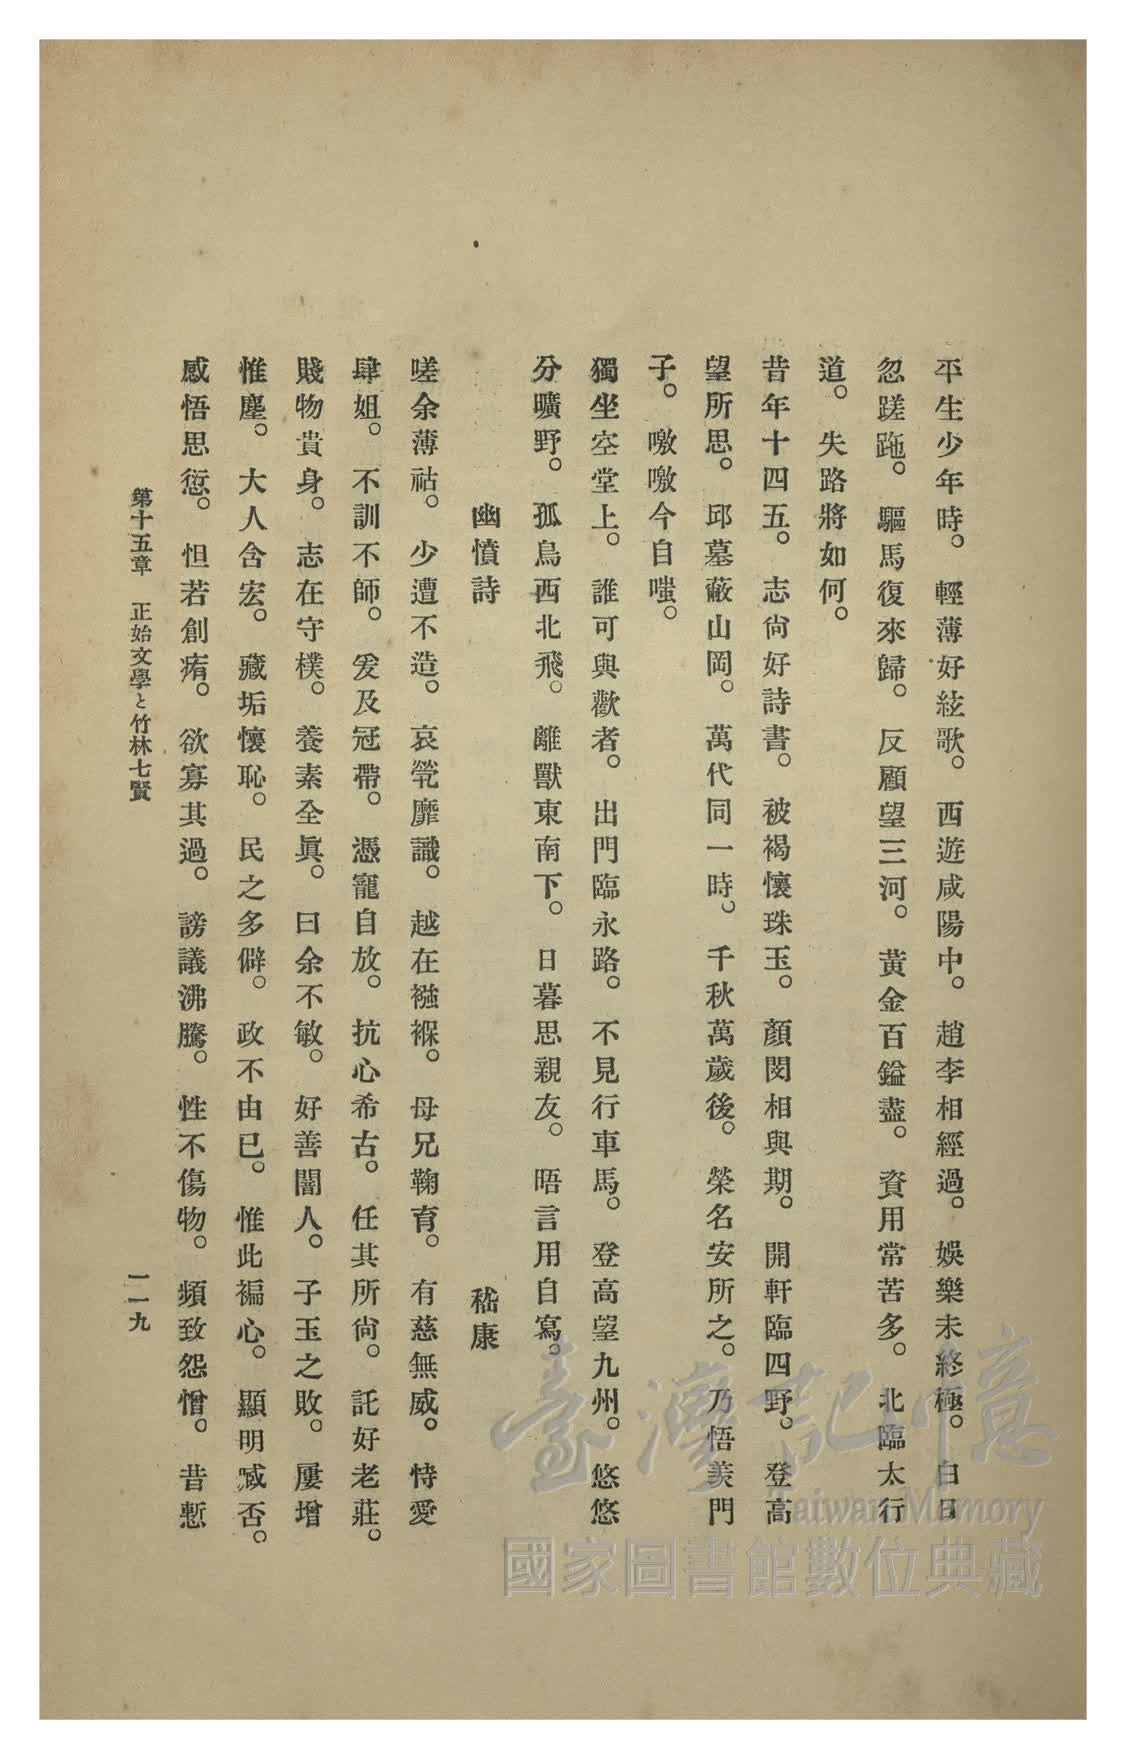 平生少年時。輕薄好絃歌。西遊咸陽中。趙李相經過。娛樂未終極。白日
忽蹉跎。驅馬復來歸。反顧望三河。黃金百鎰盡。資用常苦多。北臨太行
道。失路將如何。
昔年十四五。志尙好詩書。被褐懷珠玉。顏閔相與期。開軒臨四野。登高
望所思。邱墓蔽山岡。萬代同一時。千秋萬歲後。榮名安所之。乃悟羨門
子。噭噭今自嗤。
獨坐空堂上。誰可與歡者。出門臨永路。不見行車馬。登高望九州。悠悠
分曠野。孤鳥西北飛。離獸東南下。日暮思親友。晤言用自寫。
幽憤詩 嵇康
嗟余薄祜。少遭不造。哀煢靡識。越在襁褓。母兄鞠育。有慈無威。恃愛
肆姐。不訓不師。爰及冠帶。憑寵自放。抗心希古。任其所尙。託好老莊。
賤物貴身。志在守樸。養素全眞。曰余不敏。好善闇人。子玉之敗。屢增
惟塵。大人含宏。藏垢懷恥。民之多僻。政不由已。惟此褊心。顯明臧否。
感悟思愆。怛若創痏。欲寡其過。謗議沸騰。性不傷物。頻致怨憎。昔慙
第十五章 正始文學と竹林七賢 一一九
臺灣記憶
Taiwan Memory
國家圖書館數位典藏